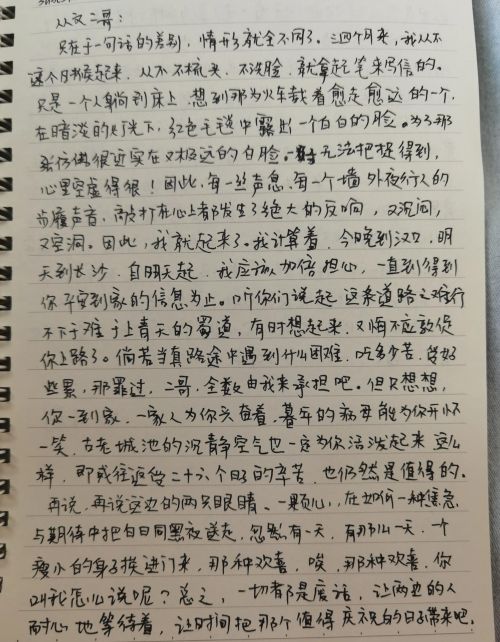 从文二哥:
只在于一句话的差别,情形就全不同了。三四个月来,我从不
这个时候起来,从不不梳头、不洗脸,就拿起笔来写信的。
只是一个人躺到床上,想到那为火车载着愈走愈远的一个,
在暗淡的灯光下,红色毛毯中露出一个白白的脸。为了那
张仿佛很近实在又极远的白脸,一时无法把捉得到,
心里空虚得很!因此,每一丝声息,每一个墙外夜行人的
步履声音,敲打在心上都发生了绝大的反响,又沉闷,
又空洞。因此,我就起来了。我计算着,今晚到汉口,明
天到长沙,自明天起,我应该加倍担心,一直到得到
你平安到家的信息为止。听你们说起这条道路之难行
不下于难于上青天的蜀道,有时想起来,又悔不应敦促
你上路了。倘若当真路途中遇到什么困难,吃多少苦,受好
些累,那罪过,二哥,全数由我来承担吧。但只想想,
你一到家,一家人为你兴奋着,暮年的病母能为你开怀
一笑,古老城池的沉静空气也一定为你活泼起来,这么
样,即或往返受二十六个日子的辛苦,也仍然是值得的。
再说,再说这边的两只眼睛,一颗心,在如何一种焦急
与期待中把白日同黑夜送走,忽然有一天,有那么一天,一个
瘦小的身子挨进门来,那种欢喜,唉,那种欢喜,你
叫我怎么说呢?总之,一切都是废话,让两边的人
耐心地等待着,让时间把那个值得庆祝的日子带来吧。